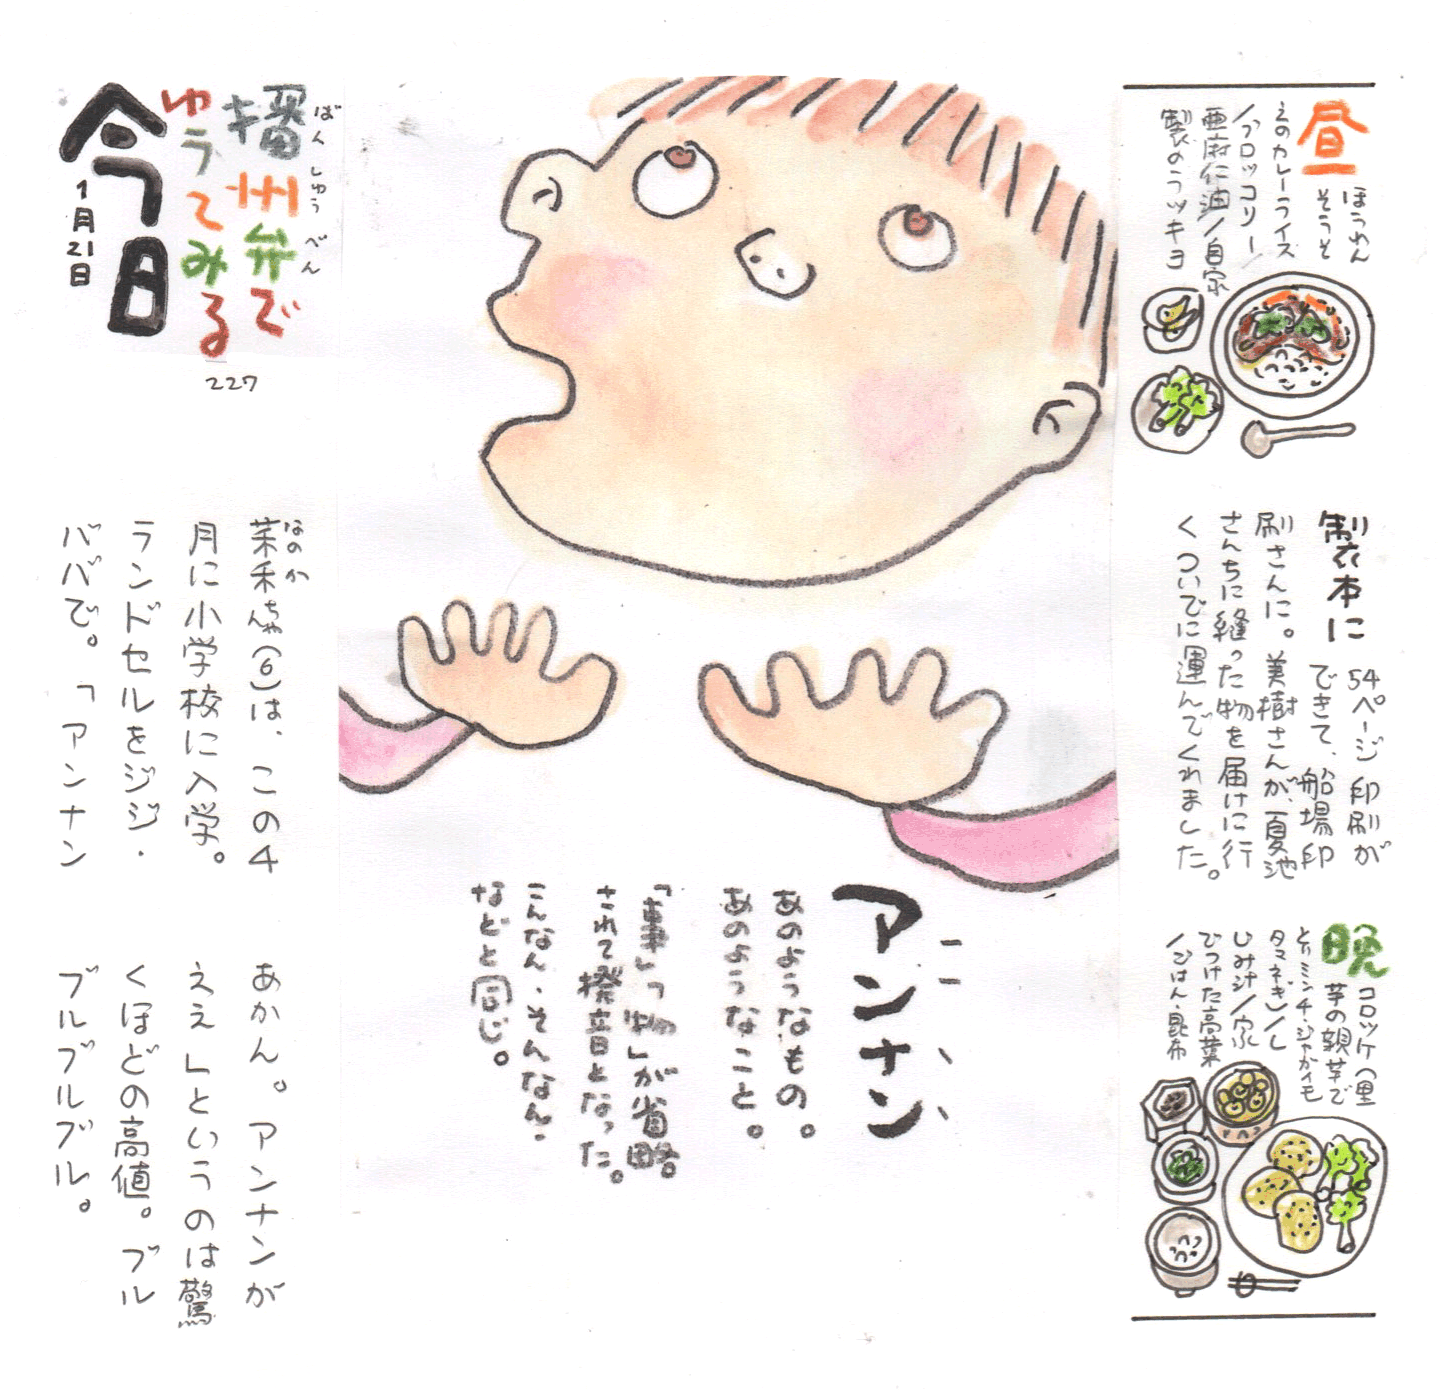 昼
ほうれん
そうそ
えのカレーライス
/ブロッコリー/
亜麻仁油/自家
製のラッキョ
製本に
54ページ印刷が
できて、船場印
刷さんに。美樹さんが、夏池
さんちに縫った物を届けに行
くついでに運んでくれました。
晩
コロッケ(里
芋の親芋で
とりミンチ・ジャガイモ
タマネギ)/し
じみ汁/家
でつけた高菜
/ごはん・昆布
アンナン
あのようなもの。
あのようなこと。
「事」「物」が省略
されて撥音となった。
こんなん・そんなん・
などと同じ。
ばんしゅうべん
播州弁で
ゆうてみる
今日
1月21日
227
なのか
茉禾ちゃん(6)は、この4
月に小学校に入学。
ランドセルをジジ・
ババで。「アンナン
あかん。アンナンが
ええ」というのは驚
くほどの高値。ブル
ブルブルブル。